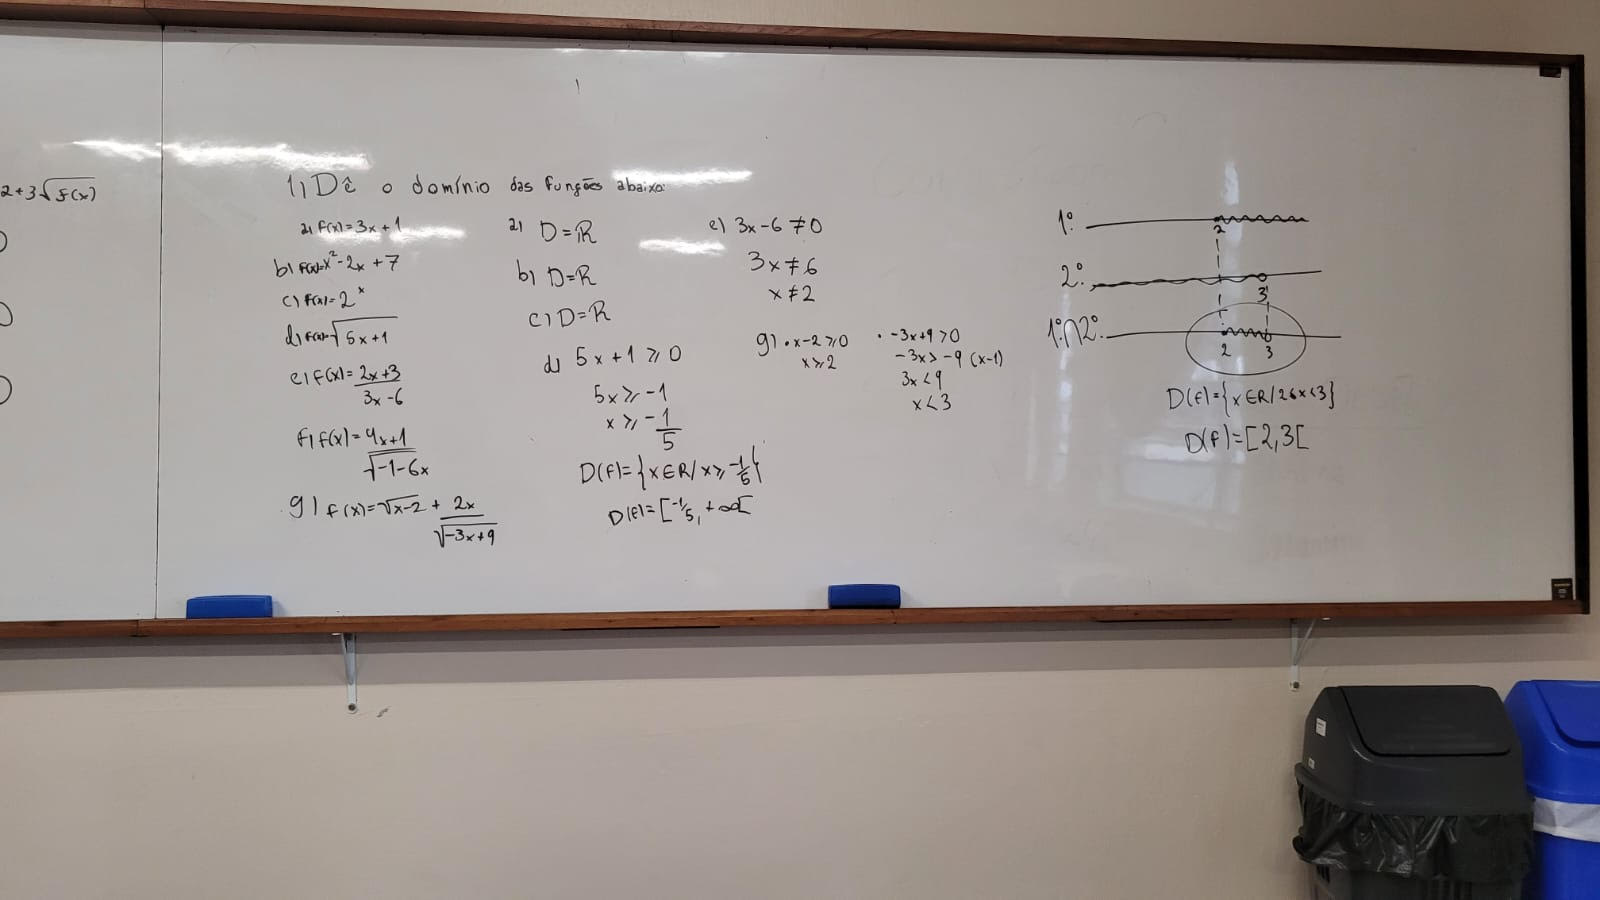 2+3√f(x)
1) Dê o domínio das funções abaixo:
a) f(x)=3x+1
b) f(x)=x²-2x+7
c) f(x)=2ˣ
d) f(x)=√5x+1
e) f(x)=2x+3
3x-6
f) f(x)=4x+1
√-1-6x
g) f(x)=√x-2 + 2x
√-3x+9
a) D=ℝ
b) D=ℝ
c) D=ℝ
d) 5x+1⩾0
5x⩾-1
x⩾-1
5
D(f)={x∈R/x⩾-1/5}
D(f)=[-1/5, +∞[
e) 3x-6≠0
3x≠6
x≠2
g) • x-2⩾0
x⩾2
• -3x+9>0
-3x>-9 (x-1)
3x<9
x<3
1º.
2
2º.
3
1º.∩2º.
2 3
D(f)={x∈R/2≤x<3}
D(f)=[2,3[